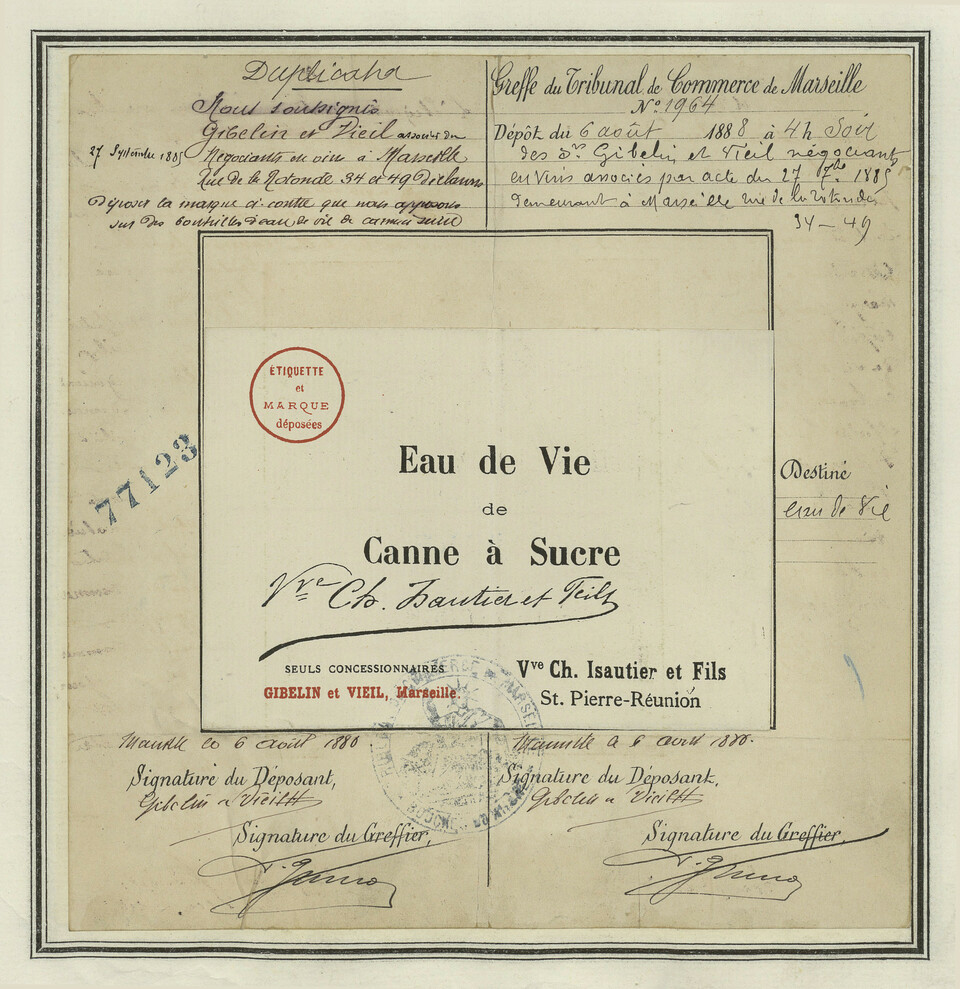 Duplicata
Nous soussignés
Gibelin et Vieil associés du
27 Septembre 1885 Négociants en vins à Marseille
Rue de la Rotonde 34 et 49 Déclarons
Déposer la marque ci-contre que nous apposons
sur des bouteilles d'eau de vie de canne à sucre
Greffe du Tribunal de Commerce de Marseille
N° 1964
Dépôt du 6 août 1888 à 4h Soir
des Srs Gibelin et Vieil négociants
en vins associés par acte du 27 7bre 1885
demeurant à Marseille rue de la rotonde
34 - 49
ÉTIQUETTE
et
MARQUE
déposées
77123
Eau de Vie
de
Canne à Sucre
Vve Ch. Isautier et Fils
Destiné
eau de Vie
SEULS CONCESSIONNAIRES
GIBELIN et VIEIL, Marseille.
Vve Ch. Isautier et Fils
St. Pierre-Réunion
COMMERCE DE MARSEILLE
Marseille le 6 août 188
Signature du Déposant,
Gibelin & Vieil
Signature du Greffier,
Marseille 6 août 188
Signature du Déposant,
Gibelin & Vieil
Signature du Greffier,